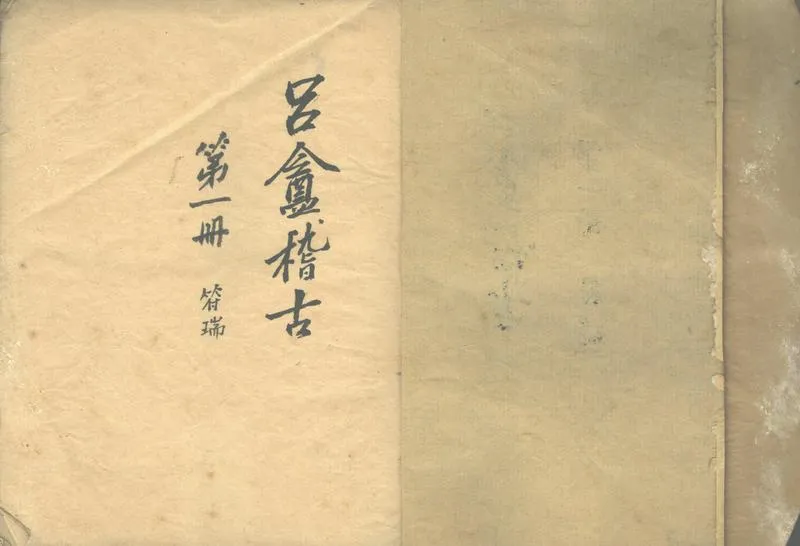 呂盦稽古
第一冊 符瑞